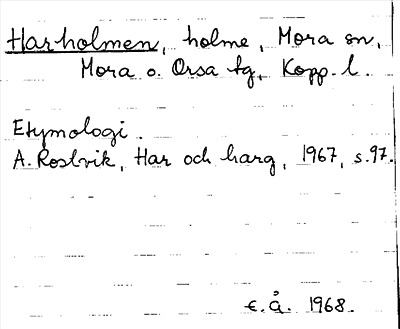 Harholmen, holme, Mora sn,
Mora o. Orsa tg, Kopp. l.
Etymologi.
A. Rostvik, Har och harg, 1967, s.97.
E.Å. 1968.